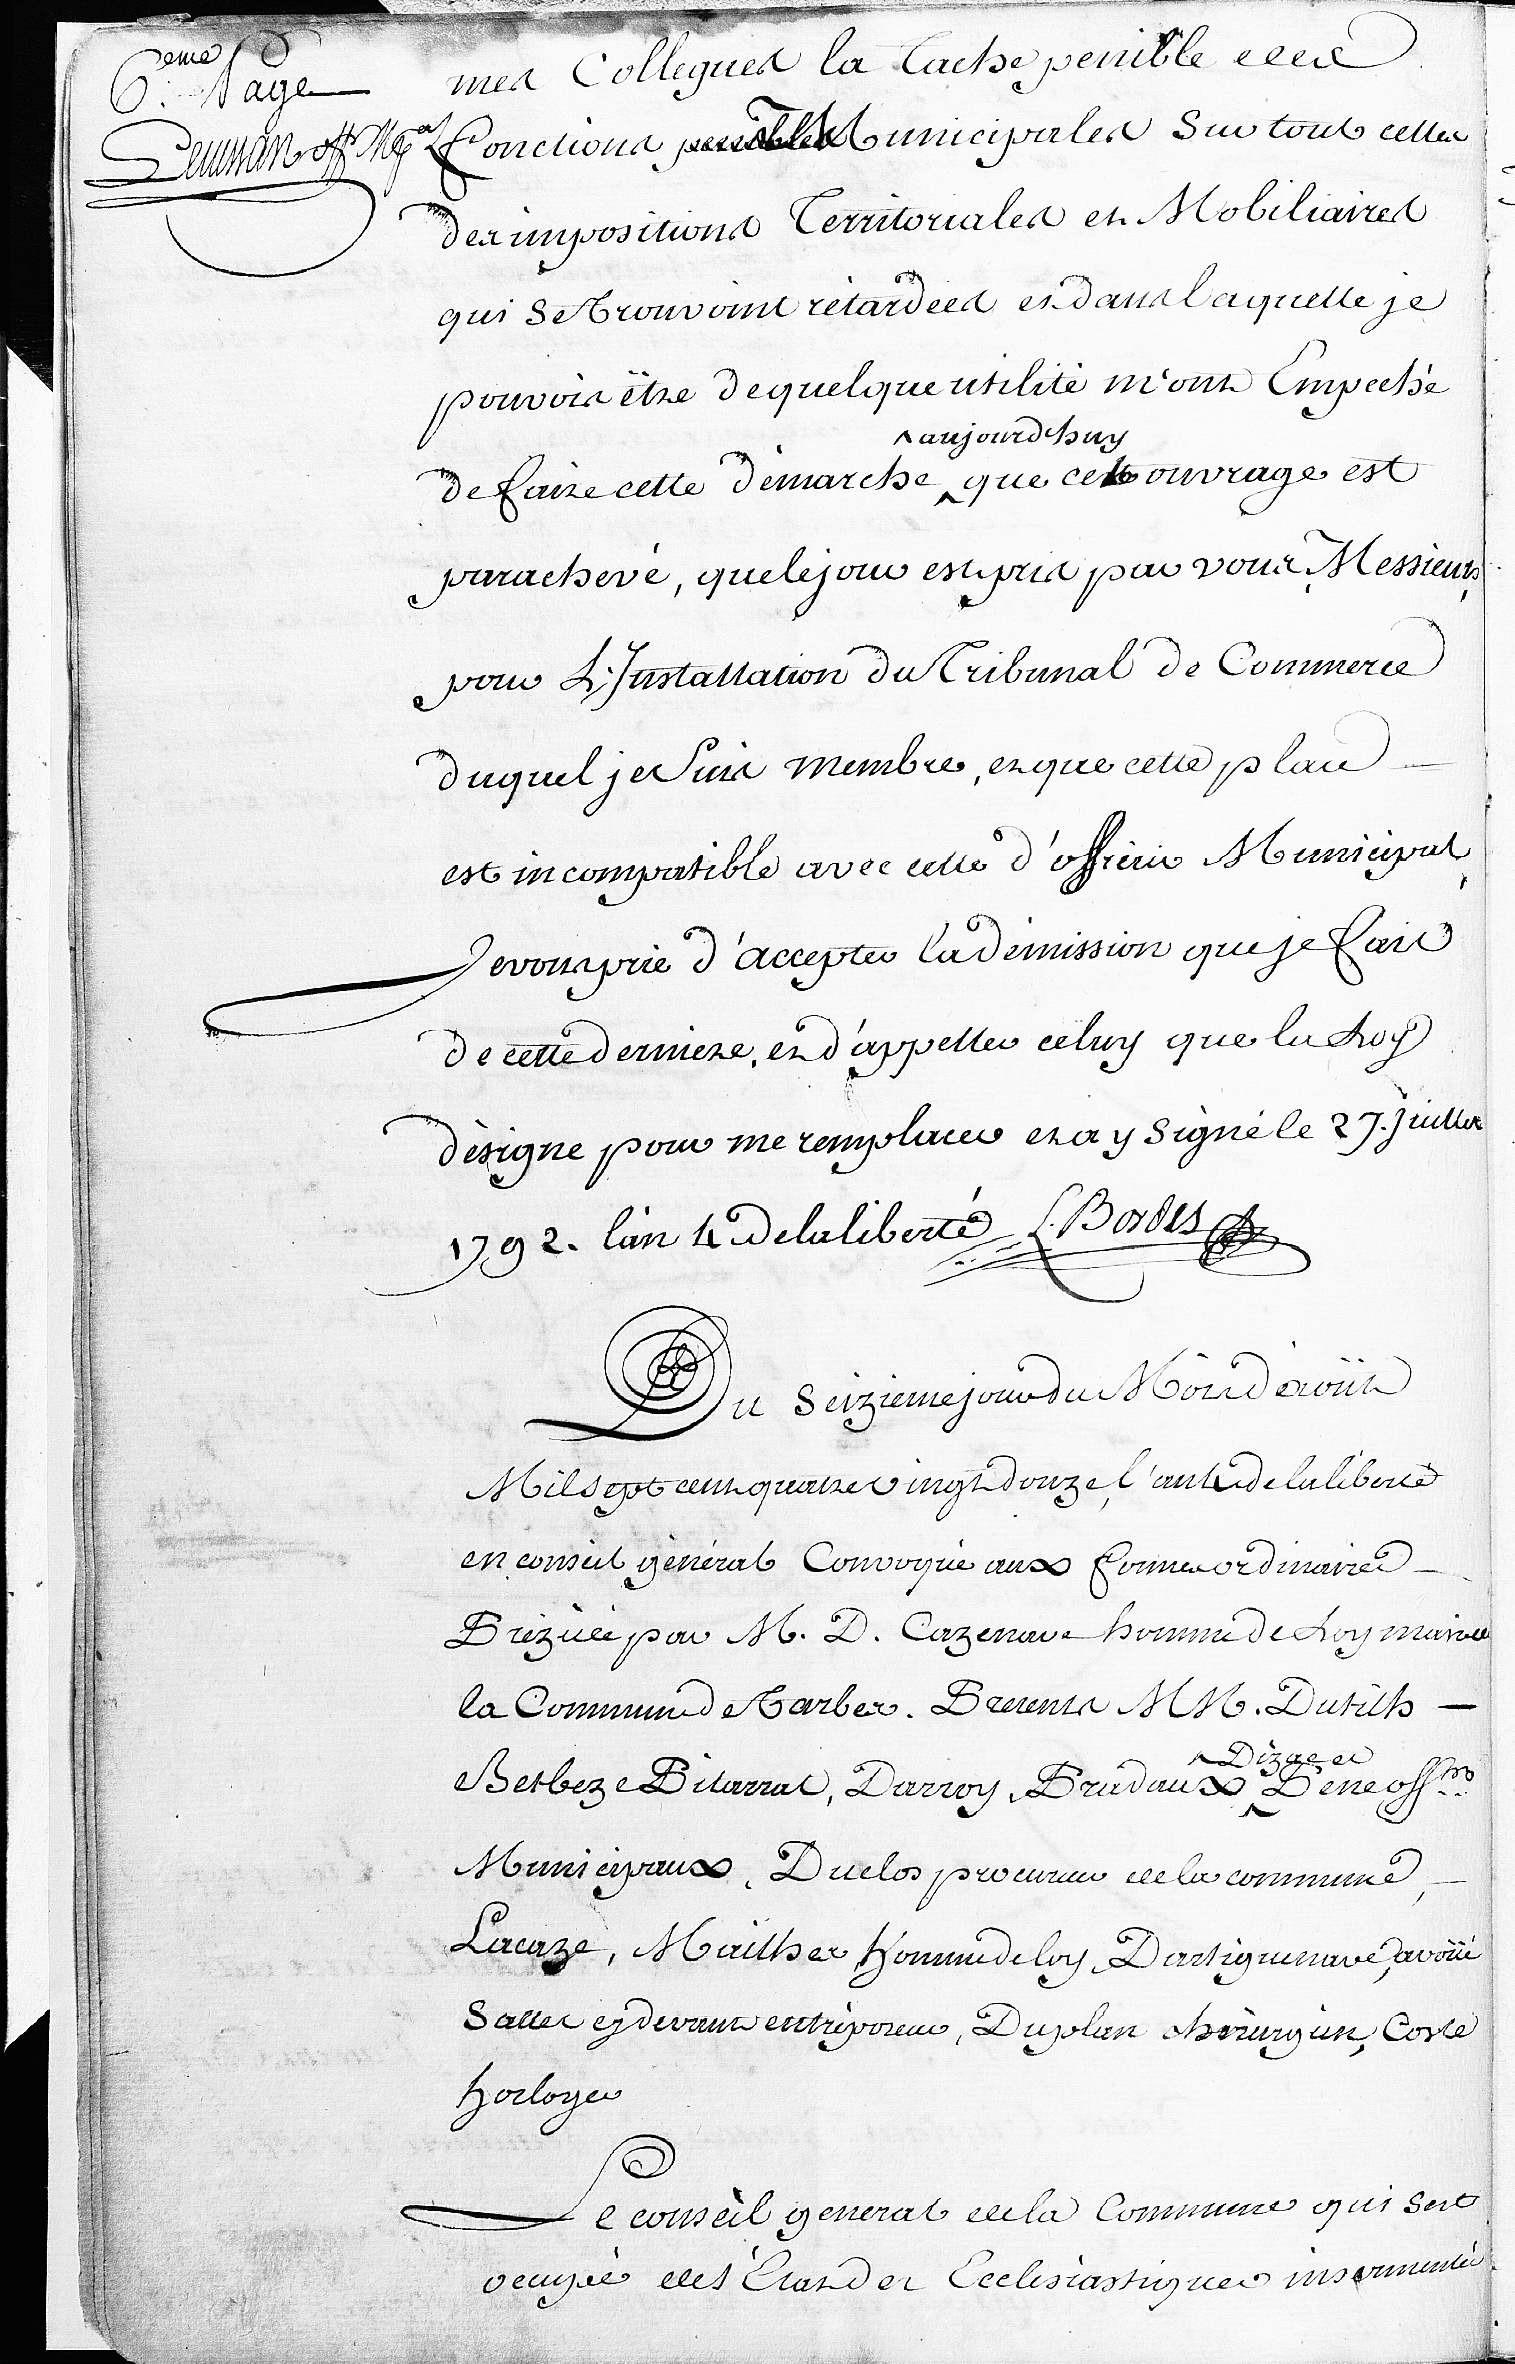 6.eme Page
mes Collegues la Tache penible des
fonctions Municipales Sur tout celles
des impositions Territoriales et Mobiliaires
qui Se Trouvoint rétardées et dans laquelle je
pouvois être de quelque utilité m'ont Empeché
aujourdhuy
de faire cette démarche que cet ouvrage est
parachevé, que le jour est pris par vous Messieurs,
pour L'Installation du Tribunal de Commerce
duquel je Suis membre, et que cette place
est incompatible avec celle d'officier Municipal,
Je vous prie d'accepter la démission que je fais
de cette derniere, et d'appeller celuy que la Loy
désigne pour me remplacer et ay Signé le 27. Juillet
1792. l'an 4 de la liberté L. Bordes
Du Seizieme jour du Mois d'août
Mil Sept cent quatre vingt douze, l'an 4 de la liberté
en conseil général Convoqué aux formes ordinaires
Prézidé par M. D. Cazenave homme de Loy maire de
la Commune de Tarbes. Presents MM. Dutilh
Dizac et
Betbeze Bitarrat, Darroy, Prudaux Pene offrs
Municipaux, Duclos procureur de la commune,
Lacaze, Mailhes homme de loy, Dartiguenave, avoüé
Salles cy devant entréposeur, Duplan chirurgien, Coste
horloger
Le conseil general de la Commune qui s'est
occupé de l'État des Ecclésiastiques insermentés